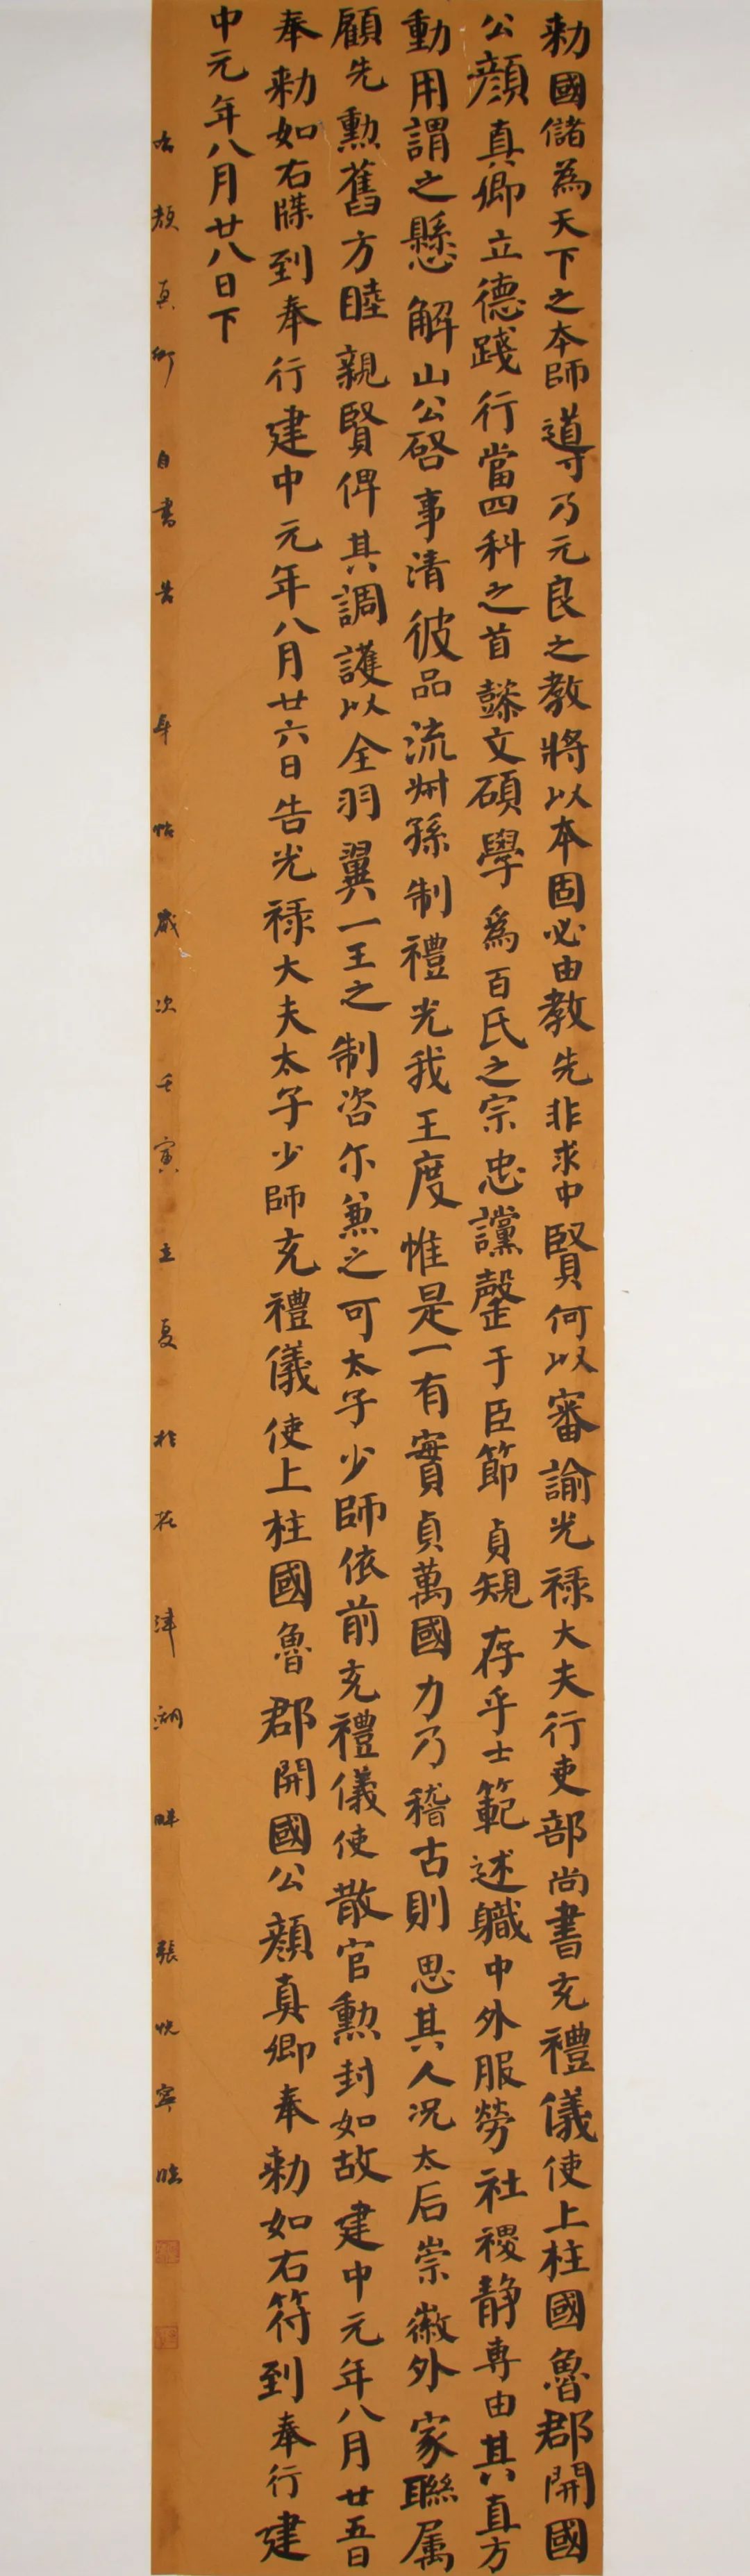 勑國儲為天下之本師導乃元良之教將以本固必由教先非求中賢何以審諭光祿大夫行吏部尚書充禮儀使上柱國魯郡開國
公顏真卿立德踐行當四科之首懿文碩學為百氏之宗忠讜罄于臣節貞規存乎士範述職中外服勞社稷静專由其直方
動用謂之懸解山公啓事清彼品流叔孫制禮光我王度惟是一有實貞萬國力乃稽古則思其人况太后崇徽外家聯属
顧先勲舊方睦親賢俾其調護以全羽翼一王之制咨尔兼之可太子少師依前充禮儀使散官勲封如故建中元年八月廿五日
奉勑如右牒到奉行建中元年八月廿六日告光祿大夫太子少師充禮儀使上柱國魯郡開國公顏真卿奉勑如右符到奉行建
中元年八月廿八日下
右顏真卿自書告身帖歲次壬寅立夏於花津湖畔張悅寧臨